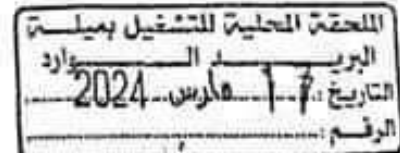 الملحقة المحلية للتشغيل بميلة
البريد الوارد
التاريخ: 17 مارس 2024
الرقم: